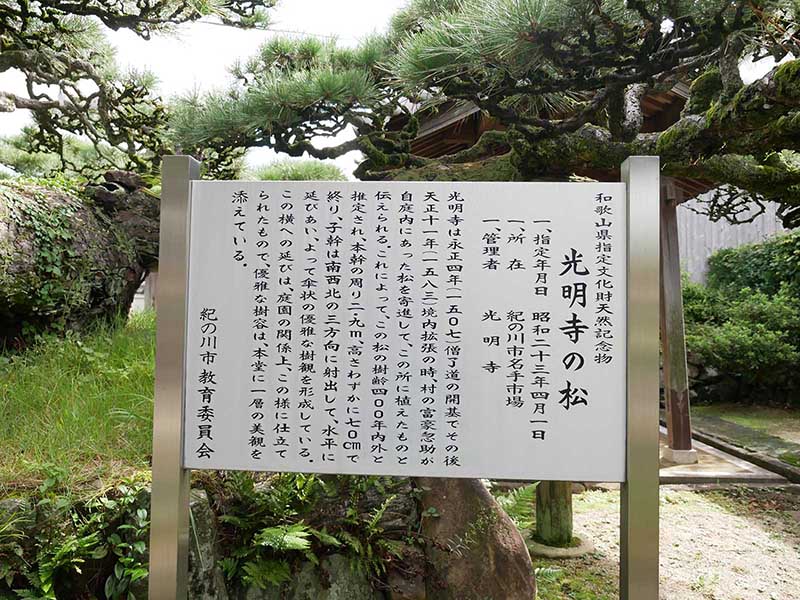 和歌山県指定文化財天然記念物
光明寺の松
一、指定年月日　昭和二十三年四月一日
一、所在　紀の川市名手市場
一、管理者　光明寺
光明寺は永正四年(一五〇七)僧了道の開基でその後
天正十一年(一五八三)境内拡張の時、村の富豪惣助が
自庭内にあった松を寄進して、この所に植えたものと
伝えられる。これによって、この松の樹齢四〇〇年内外と
推定され、本幹の周り二・九m、高さわずかに七〇cmで
終り、子幹は南西北の三方向に射出して、水平に
延びあい、よって傘状の優雅な樹観を形成している。
この横への延びは、庭園の関係上、この様に仕立て
られたもので、優雅な樹容は、本堂に一層の美観を
添えている。
紀の川市教育委員会